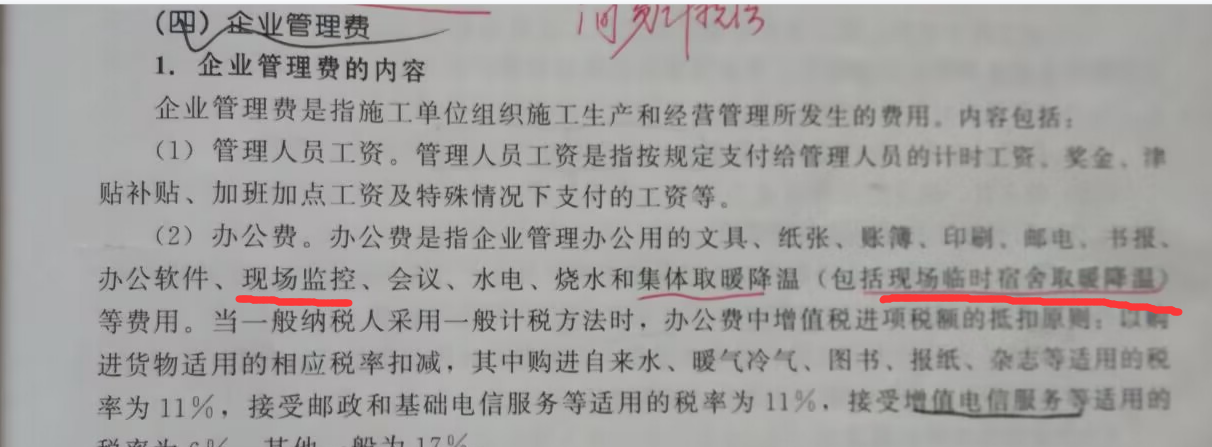 (四) 企业管理费
1. 企业管理费的内容
企业管理费是指施工单位组织施工生产和经营管理所发生的费用。内容包括：
(1) 管理人员工资。管理人员工资是指按规定支付给管理人员的计时工资、奖金、津
贴补贴、加班加点工资及特殊情况下支付的工资等。
(2) 办公费。办公费是指企业管理办公用的文具、纸张、账簿、印刷、邮电、书报、
办公软件、现场监控、会议、水电、烧水和集体取暖降温（包括现场临时宿舍取暖降温）
等费用。当一般纳税人采用一般计税方法时，办公费中增值税进项税额的抵扣原则：以购
进货物适用的相应税率扣减，其中购进自来水、暖气冷气、图书、报纸、杂志等适用的税
率为11%，接受邮政和基础电信服务等适用的税率为11%，接受增值电信服务等适用的
税率为6%，其他一般为17%。